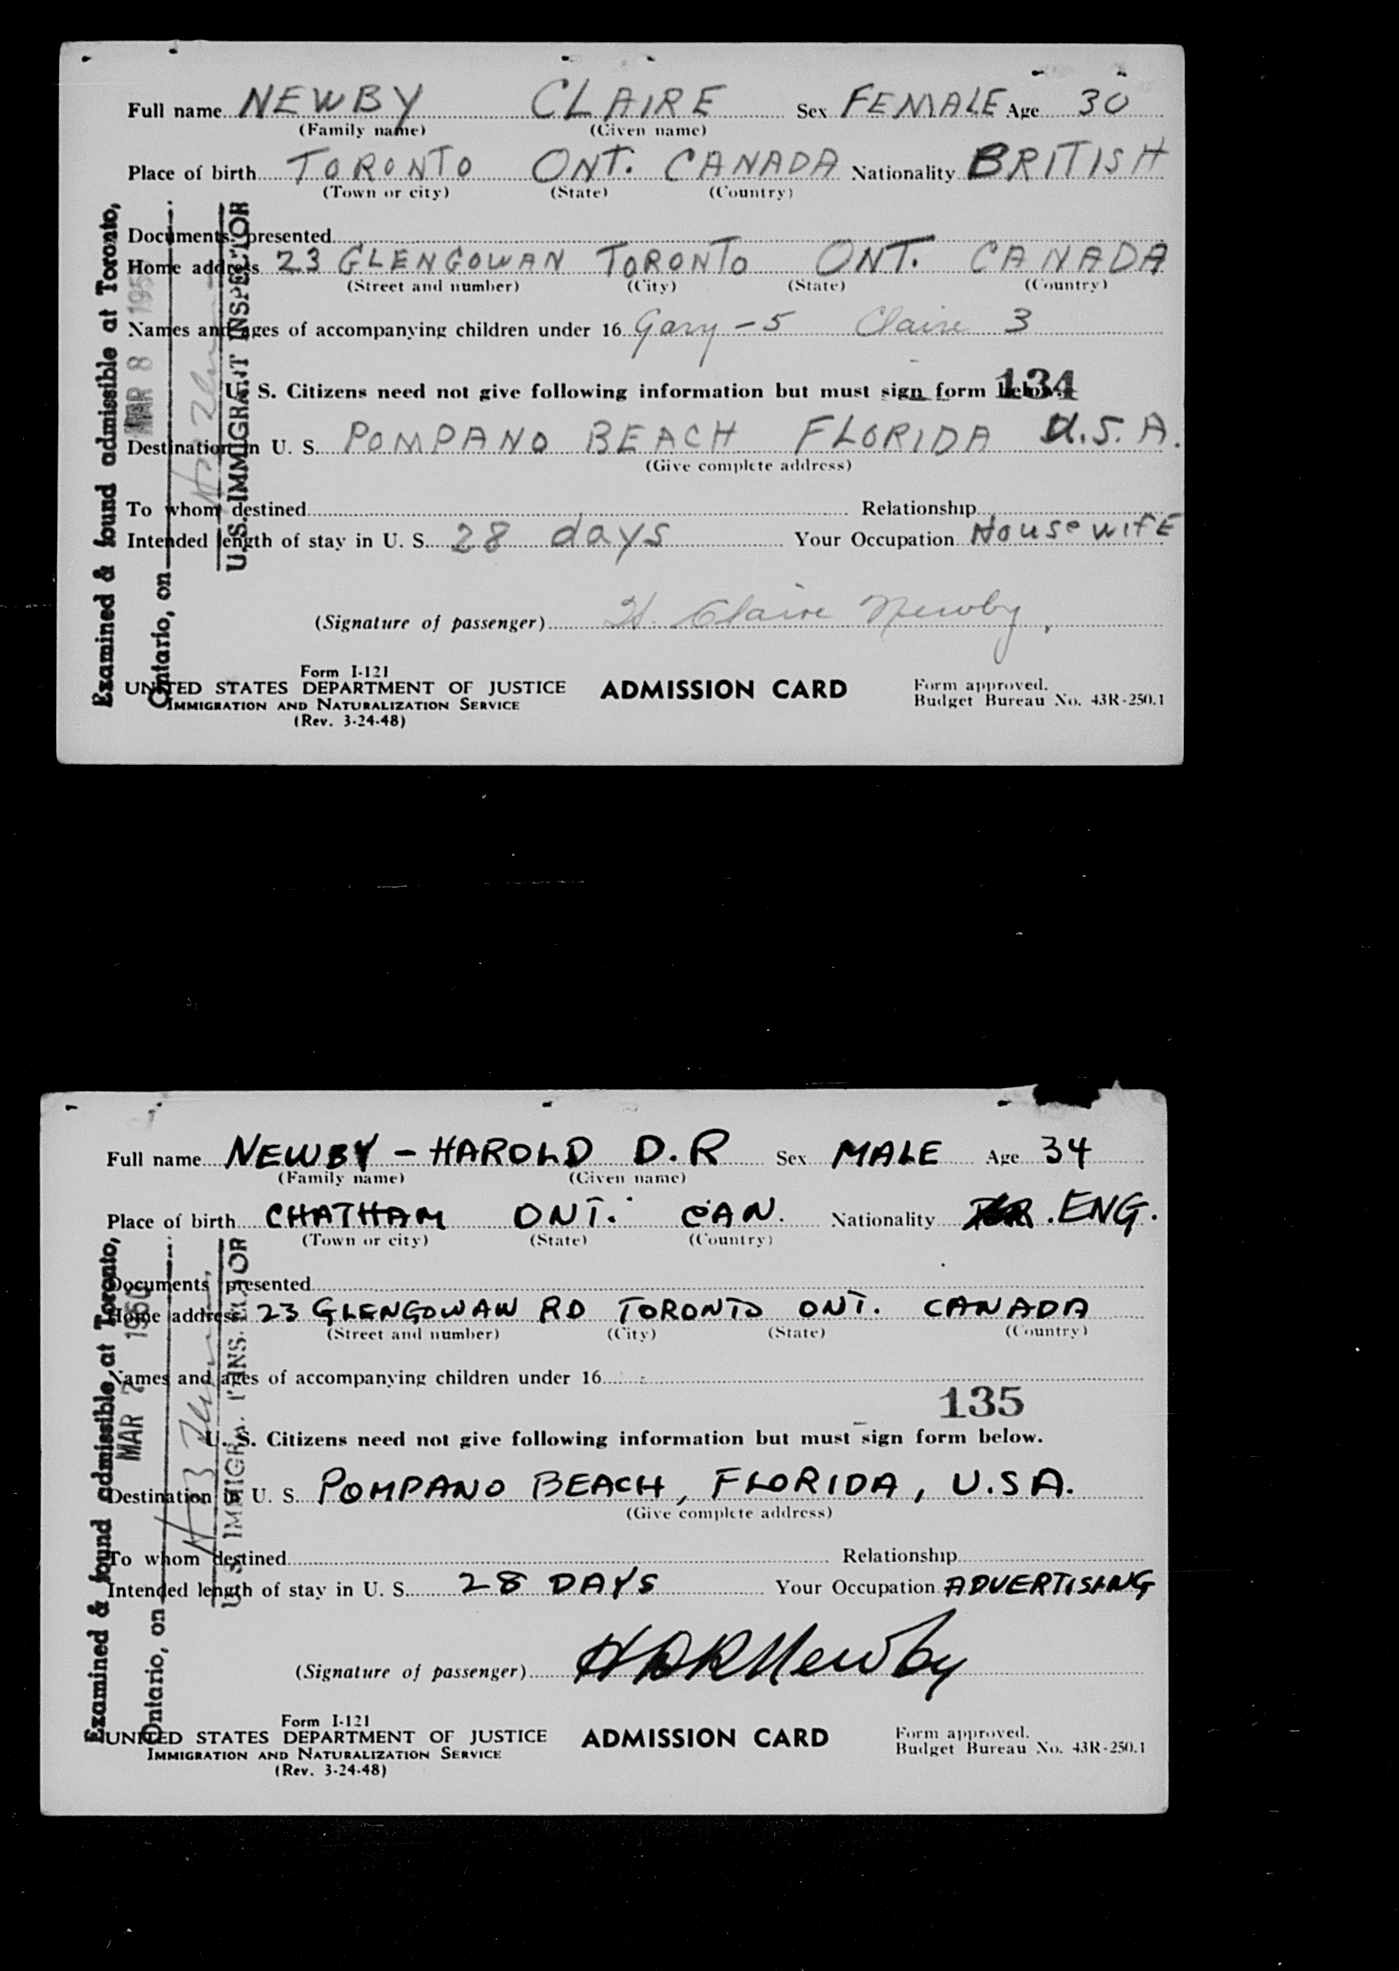 Full name NEWBY CLAIRE Sex FEMALE Age 30
(Family name) (Given name)
Place of birth TORONTO ONT. CANADA Nationality BRITISH
(Town or city) (State) (Country)
Documents presented
Home address 23 GLENGOWAN TORONTO ONT. CANADA
(Street and number) (City) (State) (Country)
Names and ages of accompanying children under 16 Gary - 5 Claire 3
134
U. S. Citizens need not give following information but must sign form below.
Destination in U. S. POMPANO BEACH FLORIDA U.S.A.
(Give complete address)
To whom destined Relationship
Intended length of stay in U. S. 28 days Your Occupation HousewifE
(Signature of passenger) H. Claire Newby
Form I-121
UNITED STATES DEPARTMENT OF JUSTICE ADMISSION CARD Form approved.
IMMIGRATION AND NATURALIZATION SERVICE Budget Bureau No. 43R-250.1
(Rev. 3-24-48)
Examined & found admissible at Toronto,
Ontario, on MAR 8
U.S. IMMIGRANT INSPECTOR
Full name NEWBY - HAROLD D.R Sex MALE Age 34
(Family name) (Given name)
Place of birth CHATHAM ONT. CAN. Nationality ENG.
(Town or city) (State) (Country)
Documents presented
Home address 23 GLENGOWAN RD TORONTO ONT. CANADA
(Street and number) (City) (State) (Country)
Names and ages of accompanying children under 16
135
U. S. Citizens need not give following information but must sign form below.
Destination in U. S. POMPANO BEACH, FLORIDA, U.S.A.
(Give complete address)
To whom destined Relationship
Intended length of stay in U. S. 28 DAYS Your Occupation ADVERTISING
(Signature of passenger) HDRNewby
Form I-121
UNITED STATES DEPARTMENT OF JUSTICE ADMISSION CARD Form approved.
IMMIGRATION AND NATURALIZATION SERVICE Budget Bureau No. 43R-250.1
(Rev. 3-24-48)
Examined & found admissible at Toronto,
Ontario, on MAR 7 1950